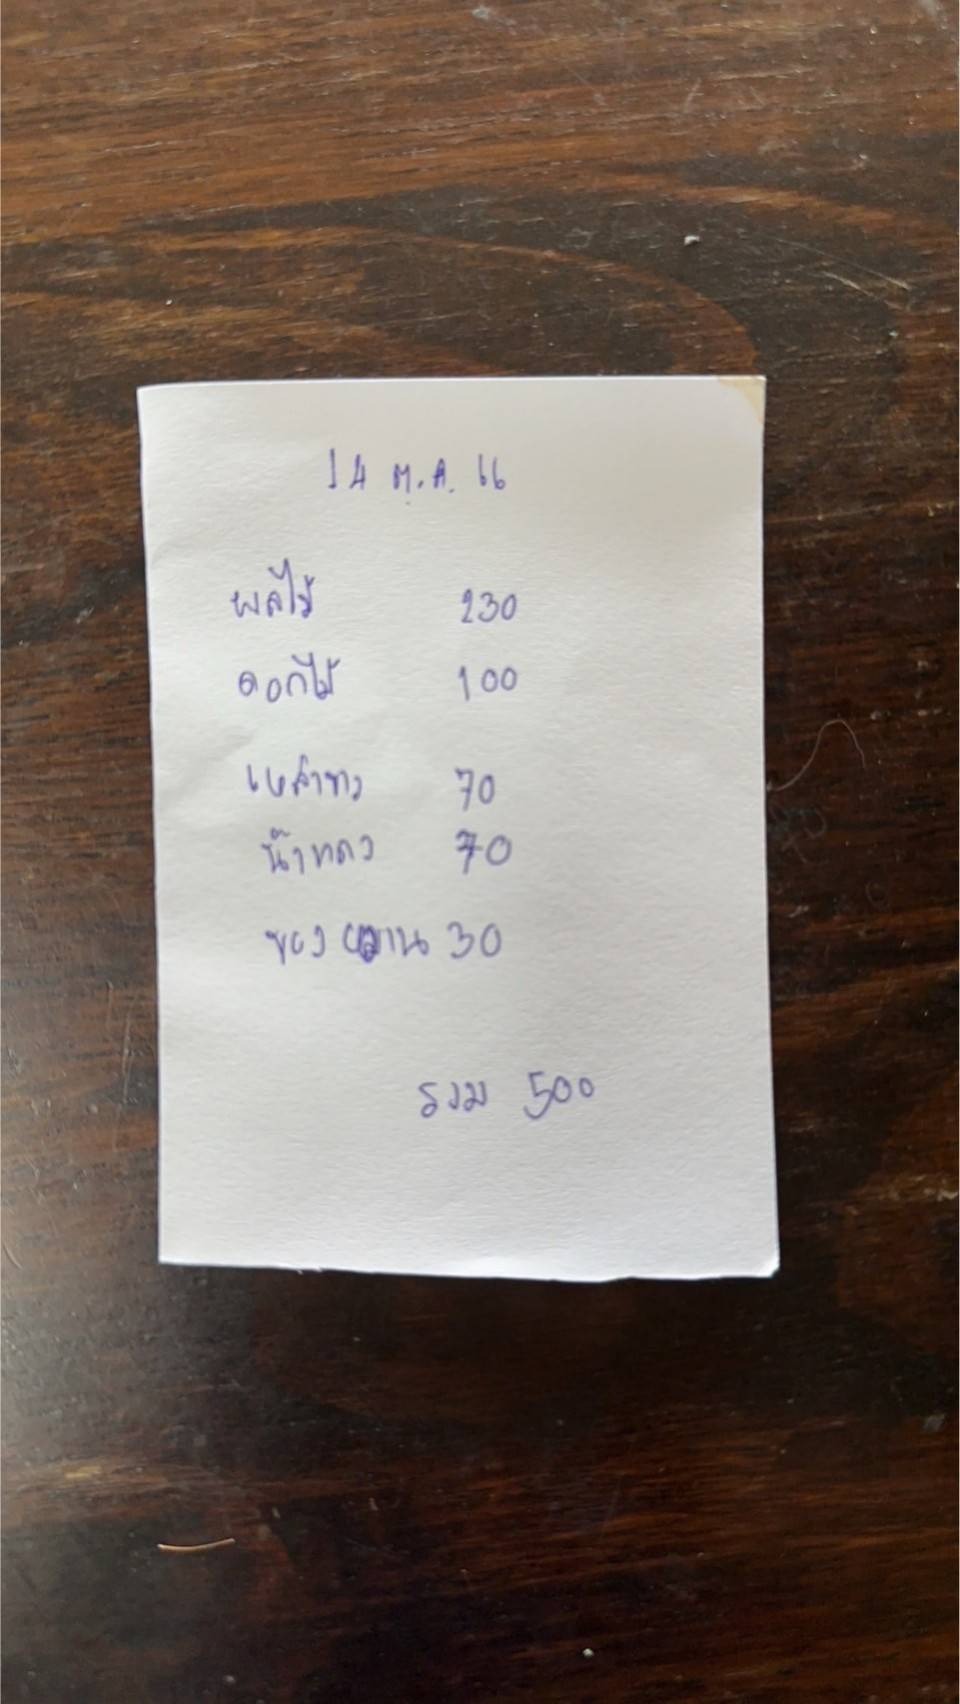 14 ต.ค. 66
ผลไม้ 230
ดอกไม้ 100
เหล้าขาว 70
น้ำแดง 70
ของหวาน 30
รวม 500